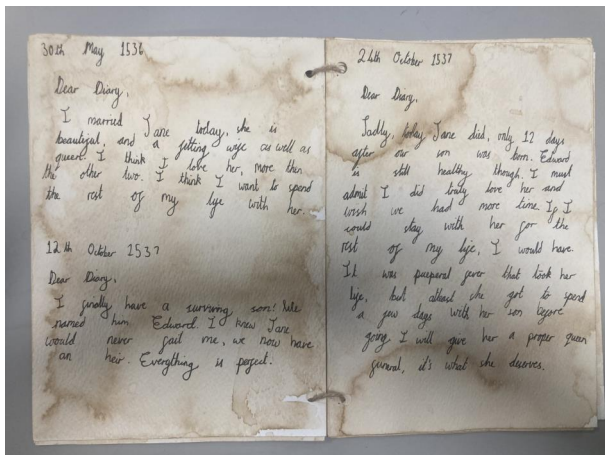 30th May 1536
Dear Diary,
I married Jane today, she is
beautiful, and a fitting wife as well as
queen. I think I love her, more then
the other two. I think I want to spend
the rest of my life with her.
12th October 1537
Dear Diary,
I finally have a surviving son! We
named him Edward. I knew Jane
would never fail me, we now have
an heir. Everything is perfect.
24th October 1537
Dear Diary,
Sadly, today Jane died, only 12 days
after our son was born. Edward
is still healthy though. I must
admit I did truly love her and
wish we had more time. If I
could stay with her for the
rest of my life, I would have.
It was puerperal fever that took her
life, but atleast she got to spend
a few days with her son before
going. I will give her a proper queen
funeral, it's what she deserves.